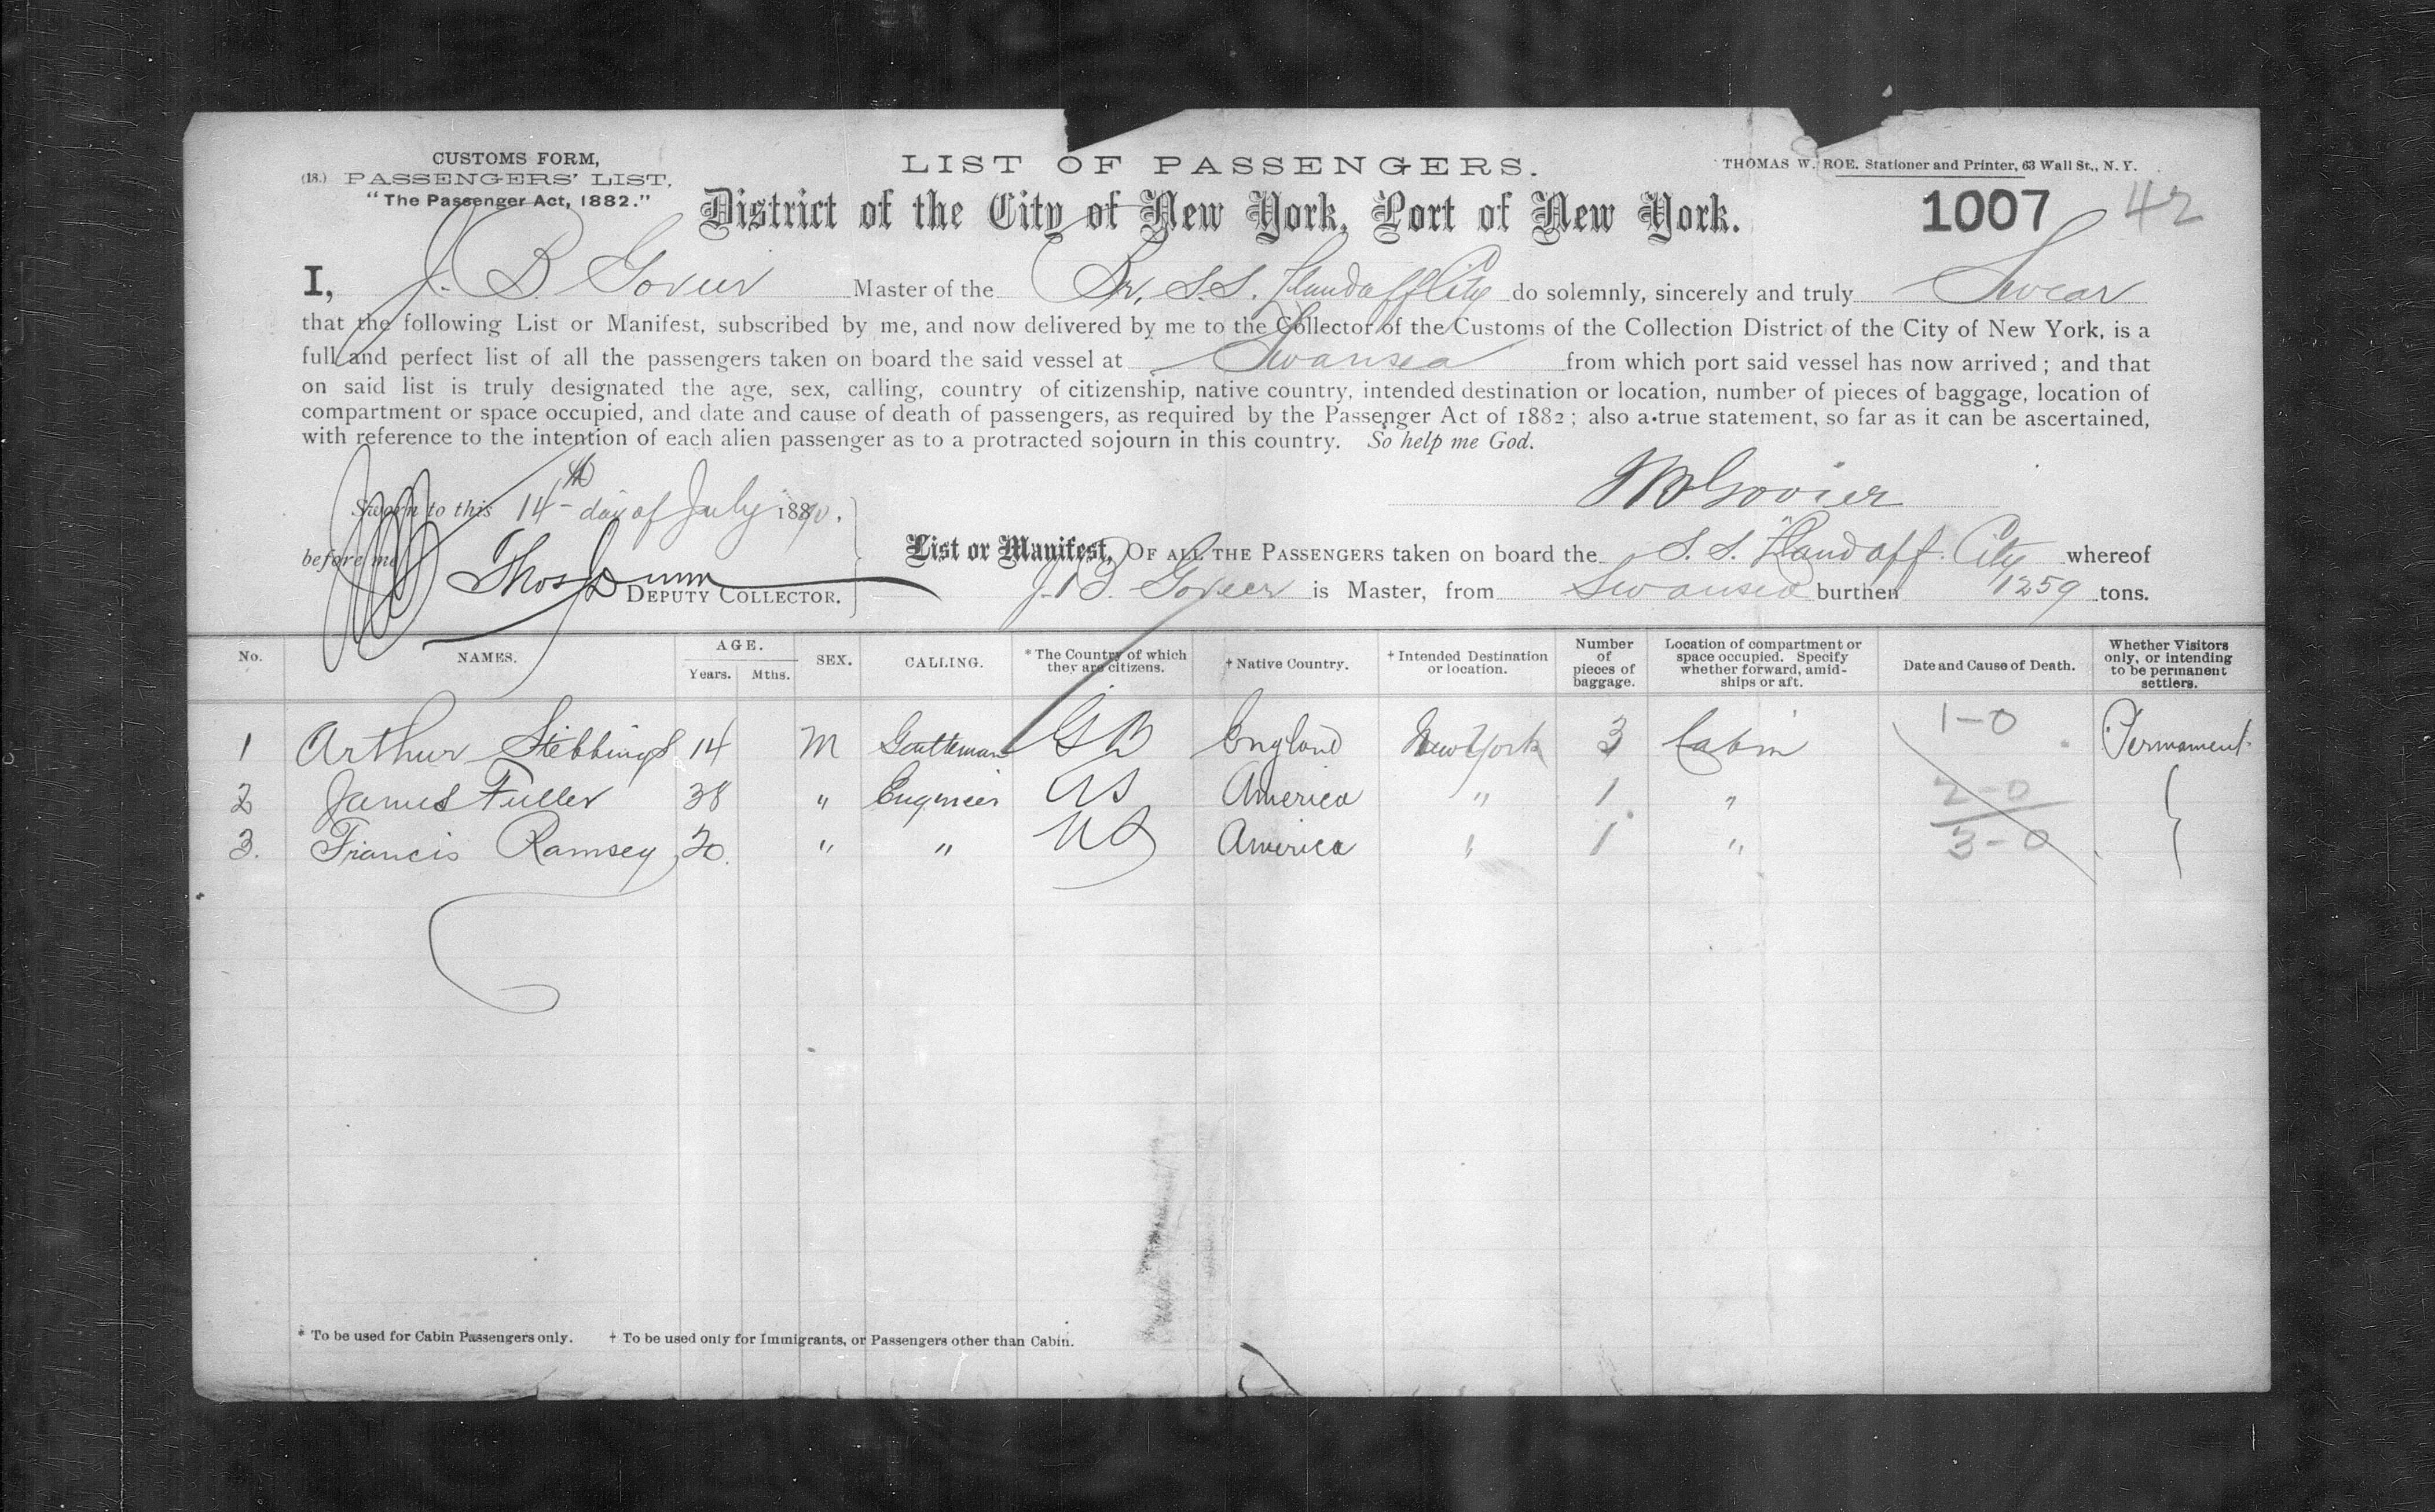 CUSTOMS FORM,
(18.) PASSENGERS' LIST,
"The Passenger Act, 1882."
LIST OF PASSENGERS.
District of the City of New York, Port of New York.
THOMAS W. ROE, Stationer and Printer, 63 Wall St., N. Y.
1007 42
I, J. B. Govier Master of the Br. S.S. Llandaff City do solemnly, sincerely and truly Swear
that the following List or Manifest, subscribed by me, and now delivered by me to the Collector of the Customs of the Collection District of the City of New York, is a
full and perfect list of all the passengers taken on board the said vessel at Swansea from which port said vessel has now arrived; and that
on said list is truly designated the age, sex, calling, country of citizenship, native country, intended destination or location, number of pieces of baggage, location of
compartment or space occupied, and date and cause of death of passengers, as required by the Passenger Act of 1882; also a true statement, so far as it can be ascertained,
with reference to the intention of each alien passenger as to a protracted sojourn in this country. So help me God.
Sworn to this 14th day of July 1890.
JB Govier
before me Thos Dunn
DEPUTY COLLECTOR.
List or Manifest, OF ALL THE PASSENGERS taken on board the S. S. Llandaff City whereof
J. B. Govier is Master, from Swansea burthen 1259 tons.
No. NAMES. AGE. Years. Mths. SEX. CALLING. * The Country of which they are citizens. † Native Country. † Intended Destination or location. Number of pieces of baggage. Location of compartment or space occupied. Specify whether forward, amidships or aft. Date and Cause of Death. Whether Visitors only, or intending to be permanent settlers.
1 Arthur Stebbings 14 M Gentleman GB England New York 3 Cabin 1-0 Permament
2 James Fuller 38 " Engineer US America " 1 " 2-0
3. Francis Ramsey 20. " " US America " 1 " 3-0
* To be used for Cabin Passengers only. † To be used only for Immigrants, or Passengers other than Cabin.